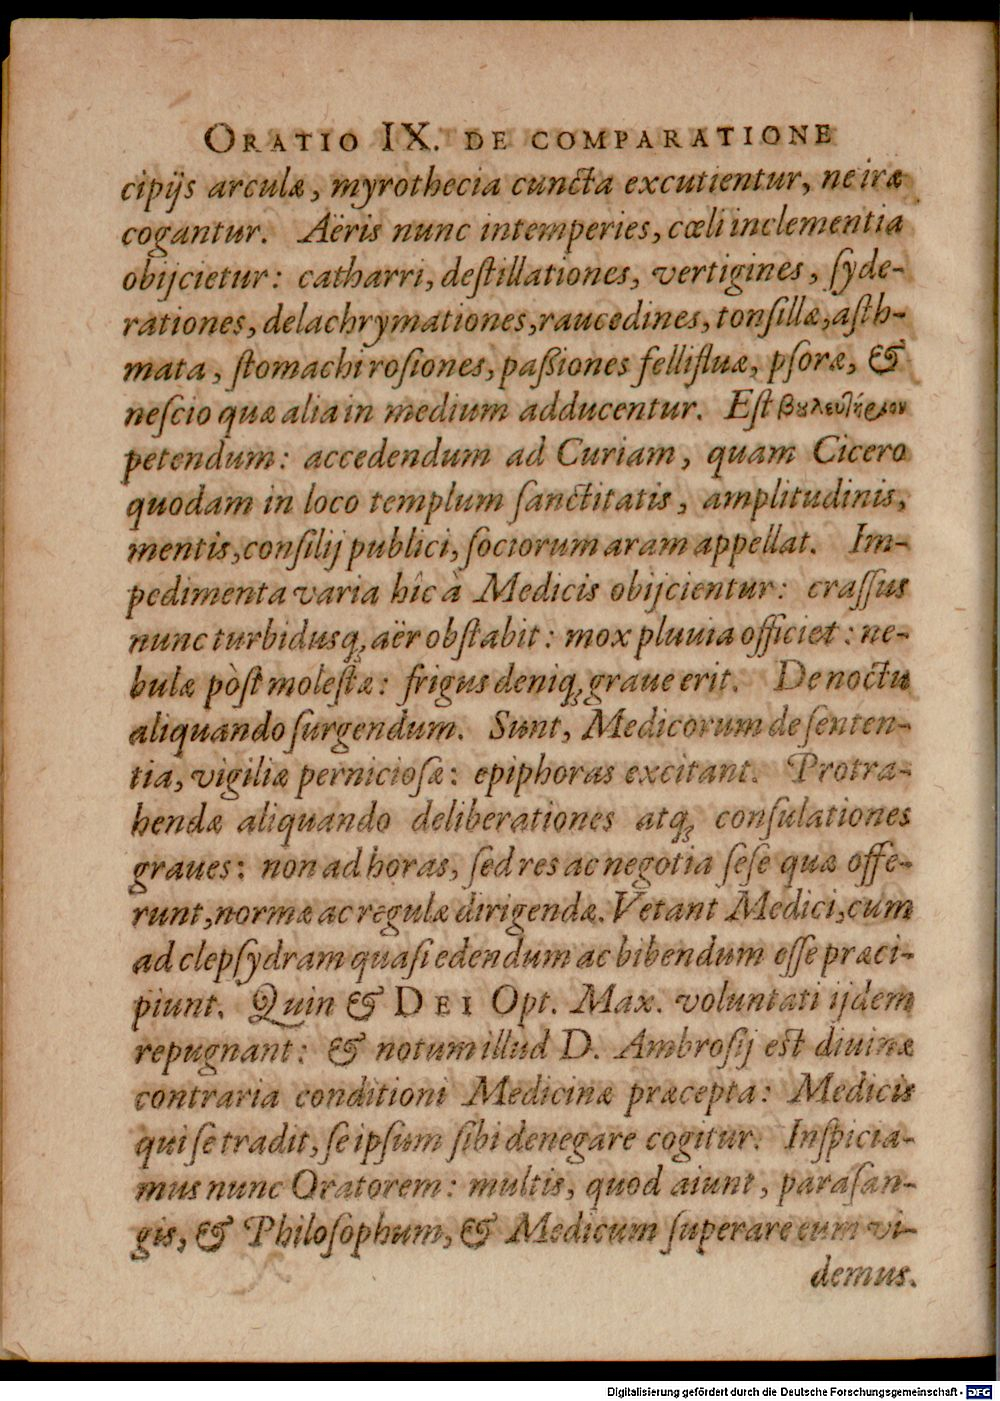 ORATIO IX. DE COMPARATIONE
cipijs arculæ, myrothecia cuncta excutientur, ne iræ
cogantur. Aëris nunc intemperies, cœli inclementia
obijcietur: catharri, deſtillationes, vertigines, ſyde-
rationes, delachrymationes, raucedines, tonſillæ, aſth-
mata, ſtomachi roſiones, paßiones felliſluæ, pſoræ, &
neſcio quæ alia in medium adducentur. Eſt βουλευτήριον
petendum: accedendum ad Curiam, quam Cicero
quodam in loco templum ſanctitatis, amplitudinis,
mentis, conſilij publici, ſociorum aram appellat. Im-
pedimenta varia hîc à Medicis obijcientur: craſſus
nunc turbidusq; aër obſtabit: mox pluuia officiet: ne-
bulæ pòſt moleſtæ: frigus deniq; graue erit. De noctu
aliquando ſurgendum. Sunt, Medicorum de ſenten-
tia, vigiliæ pernicioſæ: epiphoras excitant. Protra-
hendæ aliquando deliberationes atq; conſulationes
graues: non ad horas, ſed res ac negotia ſeſe quæ offe-
runt, normæ ac regulæ dirigendæ. Vetant Medici, cum
ad clepſydram quaſi edendum ac bibendum eſſe præci-
piunt. Quin & DEI Opt. Max. voluntati ijdem
repugnant: & notum illud D. Ambroſij eſt diuinæ
contraria conditioni Medicinæ præcepta: Medicis
qui ſe tradit, ſe ipſum ſibi denegare cogitur. Inſpicia-
mus nunc Oratorem: multis, quod aiunt, paraſan-
gis, & Philoſophum, & Medicum ſuperare eum vi-
demus.
Digitalisierung gefördert durch die Deutsche Forschungsgemeinschaft - DFG